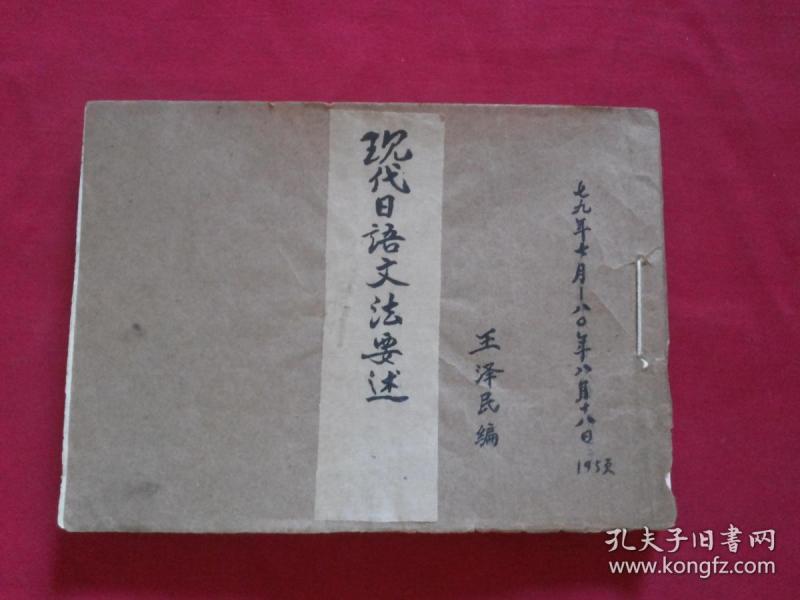 七九年七月—八〇年八月十八日
195页
王泽民编
现代日语文法要述
孔夫子旧书网
www.kongfz.com